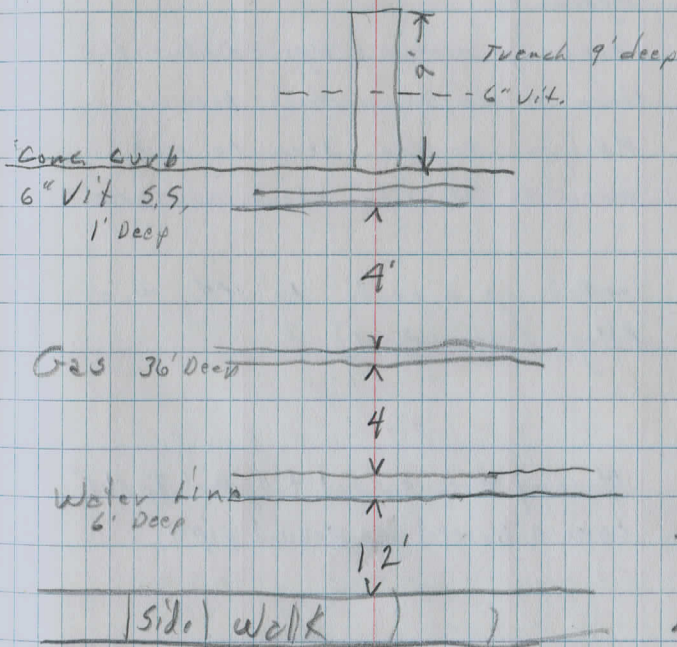 Trench 9' deep
9'
6" Vit.
Conc Curb
6" Vit S.S.
1' Deep
4'
Gas 36' Deep
4
Water Line
6' Deep
12'
Side walk